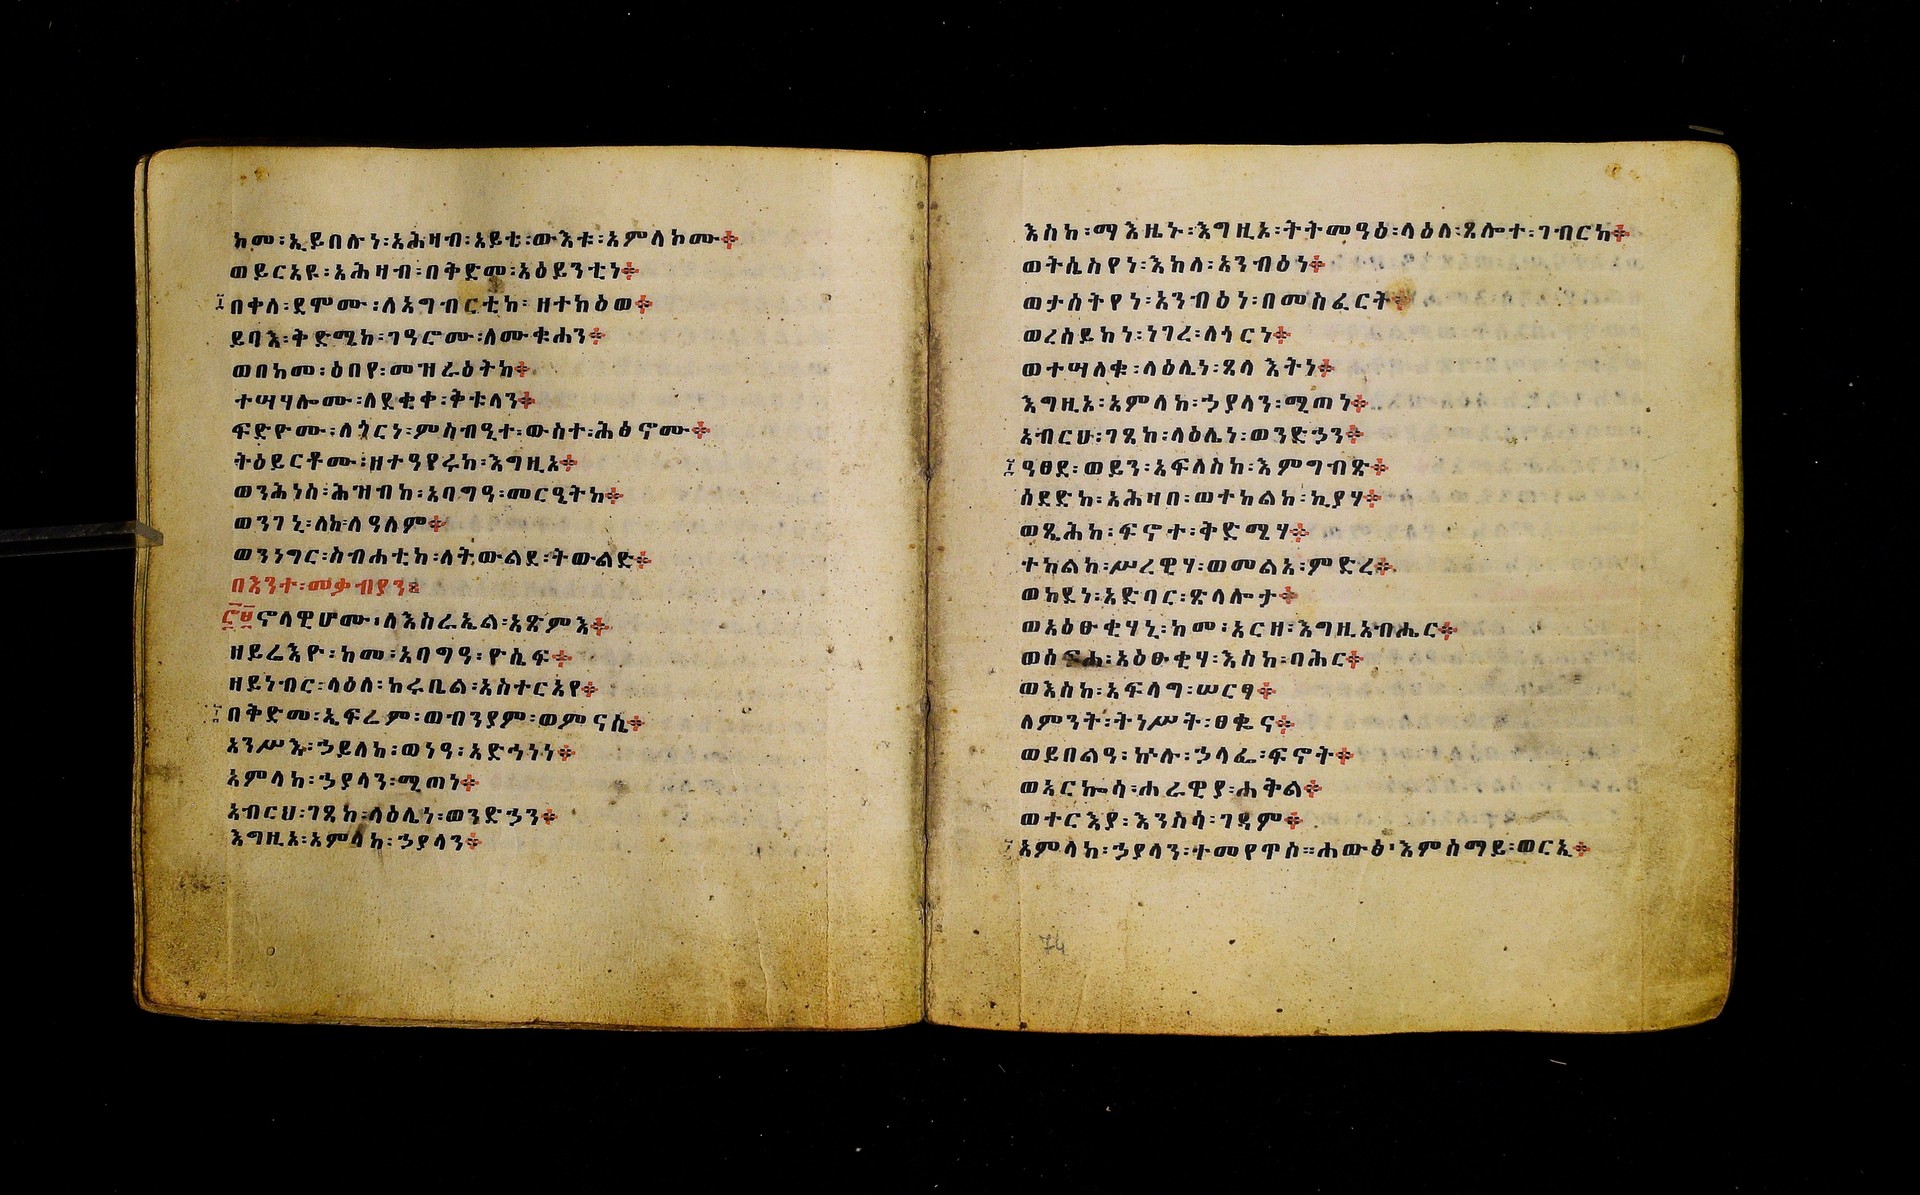 ከመ፡ኢይበሉነ፡አሕዛብ፡አይቴ፡ውእቱ፡አምላኮሙ፨
ወይርአዩ፡አሕዛብ፡በቅድመ፡አዕይንቲነ፨
በቀለ፡ደሞሙ፡ለአግብርቲከ፡ዘተክዕወ፨
ይባእ፡ቅድሜከ፡ገዓሮሙ፡ለሙቁሐን፨
ወበከመ፡ዕበየ፡መዝራዕትከ፨
ተሣሃሎሙ፡ለደቂቀ፡ቅቱላን፨
ፍድዮሙ፡ለጎርነ፡ምስብዒተ፡ውስተ፡ሕፅኖሙ፨
ትዕይርቶሙ፡ዘተዓየሩከ፡እግዚኦ፨
ወንሕነሰ፡ሕዝብከ፡አባግዓ፡መርዒትከ፨
ወንገኒ፡ለከ፡ለዓለም፨
ወንነግር፡ስብሐቲከ፡ለትውልደ፡ትውልድ፨
በእንተ፡መቃብያን፡
፸፱ ኖላዊሆሙ፡ለእስራኤል፡አጽምእ፨
ዘይሬእዮ፡ከመ፡አባግዓ፡ዮሴፍ፨
ዘይነብር፡ላዕለ፡ኪሩቤል፡አስተርአየ፨
በቅድመ፡ኤፍሬም፡ወብንያም፡ወምናሴ፨
አንሥእ፡ኃይለከ፡ወነዓ፡አድኅነነ፨
አምላከ፡ኃያላን፡ሚጠነ፨
አብርህ፡ገጸከ፡ላዕሌነ፡ወንድኃን፨
እግዚኦ፡አምላከ፡ኃያላን፨
እስከ፡ማእዜኑ፡እግዚኦ፡ትትመዓዕ፡ላዕለ፡ጸሎተ፡ገብርከ፨
ወትሴስየነ፡እክለ፡አንብዕነ፨
ወታሰትየነ፡አንብዕነ፡በመስፈርት፨
ወረሰይከነ፡ነገረ፡ለጎርነ፨
ወተሣለቁ፡ላዕሌነ፡ጸላእትነ፨
እግዚኦ፡አምላከ፡ኃያላን፡ሚጠነ፨
አብርሁ፡ገጸከ፡ላዕሌነ፡ወንድኃን፨
ዓፀደ፡ወይን፡አፍለስከ፡እምግብጽ፨
ሰደድከ፡አሕዛበ፡ወተከልከ፡ኪያሃ፨
ወጼሕከ፡ፍኖተ፡ቅድሜሃ፨
ተከልከ፡ሥረዊሃ፡ወመልአ፡ምድረ፨
ወከደነ፡አድባር፡ጽላሎታ፨
ወአዕፁቂሃኒ፡ከመ፡አርዘ፡እግዚአብሔር፨
ወሰፍሐ፡አዕፁቂሃ፡እስከ፡ባሕር፨
ወእስከ፡አፍላግ፡ሠርፃ፨
ለምንት፡ትነሥት፡ፀቈና፨
ወይበልዓ፡ኵሉ፡ኃላፌ፡ፍኖት፨
ወአርኰሳ፡ሐራዊያ፡ሐቅል፨
ወተርእያ፡እንስሳ፡ገዳም፨
አምላከ፡ኃያላን፡ተመየጥሰ።ሐውፅ፡እምሰማይ፡ወርኢ፨
74